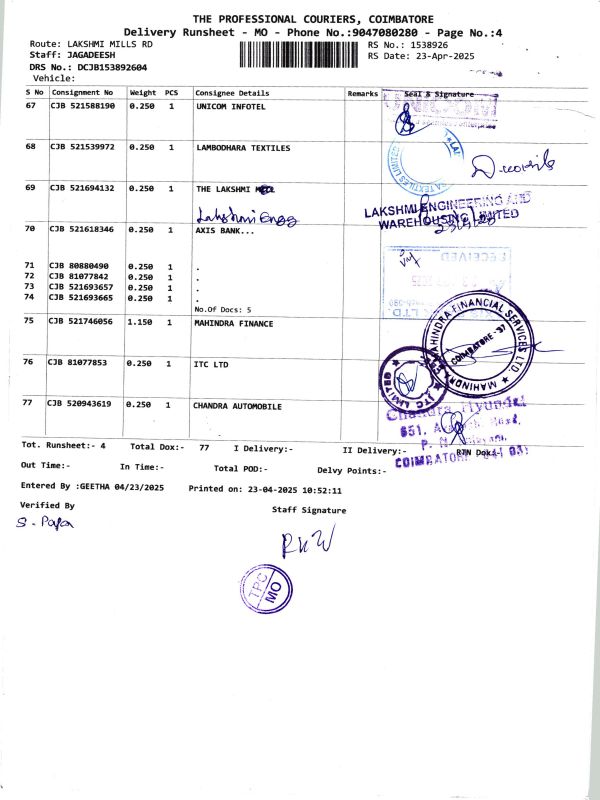 THE PROFESSIONAL COURIERS, COIMBATORE
Delivery Runsheet - MO - Phone No.:9047080280 - Page No.:4
Route: LAKSHMI MILLS RD
RS No.: 1538926
Staff: JAGADEESH
RS Date: 23-Apr-2025
DRS No.: DCJB153892604
Vehicle:
S No Consignment No Weight PCS Consignee Details Remarks Seal & Signature
67 CJB 521588190 0.250 1 UNICOM INFOTEL
68 CJB 521539972 0.250 1 LAMBODHARA TEXTILES
69 CJB 521694132 0.250 1 THE LAKSHMI
Lakshmi Engg
LAKSHMI ENGINEERING AND
WAREHOUSING LIMITED
70 CJB 521618346 0.250 1 AXIS BANK...
RECEIVED
71 CJB 80880490 0.250 1 .
72 CJB 81077842 0.250 1 .
73 CJB 521693657 0.250 1 .
74 CJB 521693665 0.250 1 .
No.Of Docs: 5
75 CJB 521746056 1.150 1 MAHINDRA FINANCE
MAHINDRA FINANCIAL SERVICES LTD.
COIMBATORE -37
76 CJB 81077853 0.250 1 ITC LTD
ITC LIMITED
77 CJB 520943619 0.250 1 CHANDRA AUTOMOBILE
Chandra Hyundai
Tot. Runsheet:- 4 Total Dox:- 77 I Delivery:- II Delivery:- RTN Dox:-
Out Time:- In Time:- Total POD:- Delvy Points:-
Entered By :GEETHA 04/23/2025 Printed on: 23-04-2025 10:52:11
Verified By
Staff Signature
TPC
MO